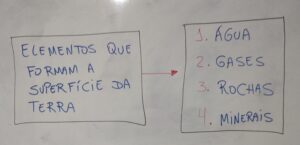 ELEMENTOS QUE
FORMAM A
SUPERFÍCIE DA
TERRA
1. ÁGUA
2. GASES
3. ROCHAS
4. MINERAIS